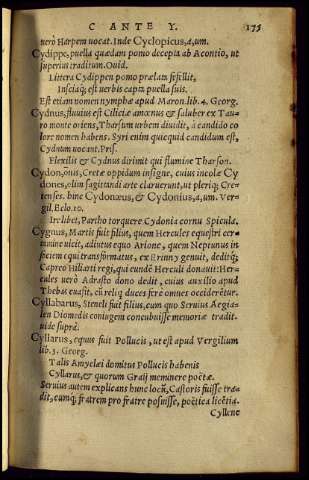 C ANTE Y.
175
verò Harpem vocat. Inde Cyclopicus,a,um.
Cydippe,puella quædam pomo decepta ab Acontio, ut
superius traditum. Ovid.
Littera Cydippen pomo prælata fefellit,
Insciaq; est verbis capta puella suis.
Est etiam nomen nymphæ apud Maron. lib. 4. Georg.
Cydnus, fluvius est Ciliciæ amœnus & saluber ex Tau
ro monte oriens, Tharsum urbem dividit, à candido co
lore nomen habens. Syri enim quicquid candidum est,
Cydnum vocant. Pris.
Flexilis & Cydnus dirimit qui flumine Tharson.
Cydon,onis, Cretæ oppidum insigne, cuius incolæ Cy
dones, olim sagittandi arte claruerunt, ut pleriq; Cre-
tenses. hinc Cydonæus, & Cydonius,a, um. Ver-
gil. Eclo. 10.
Ire libet, Partho torquere Cydonia cornu Spicula.
Cygnus, Martis fuit filius, quem Hercules equestri cer-
mine vicit, adiutus equo Arione, quem Neptunus in
speciem equi transformatus, ex Erinny genuit, deditq;
Capreo Hiliarti regi, qui eundē Herculi donauit: Her-
cules verò Adrasto dono dedit, cuius auxilio apud
Thebas euasit, cū reliq duces ferè omnes occiderētur.
Cyllabarus, Steneli fuit filius, cum quo Seruius Aegia-
len Diomedis coniugem concubuisse memoriæ tradit.
vide suprà.
Cyllarus, equus fuit Pollucis, ut est apud Vergilium
lib. 3. Georg.
Talis Amyclæi domitus Pollucis habenis
Cyllarus, & quorum Graij meminere poëtæ.
Seruius autem explicans hunc locū, Castoris fuisse tra-
dit, eumq; fratrem pro fratre posuisse, poëtica licētia.
Cyllene